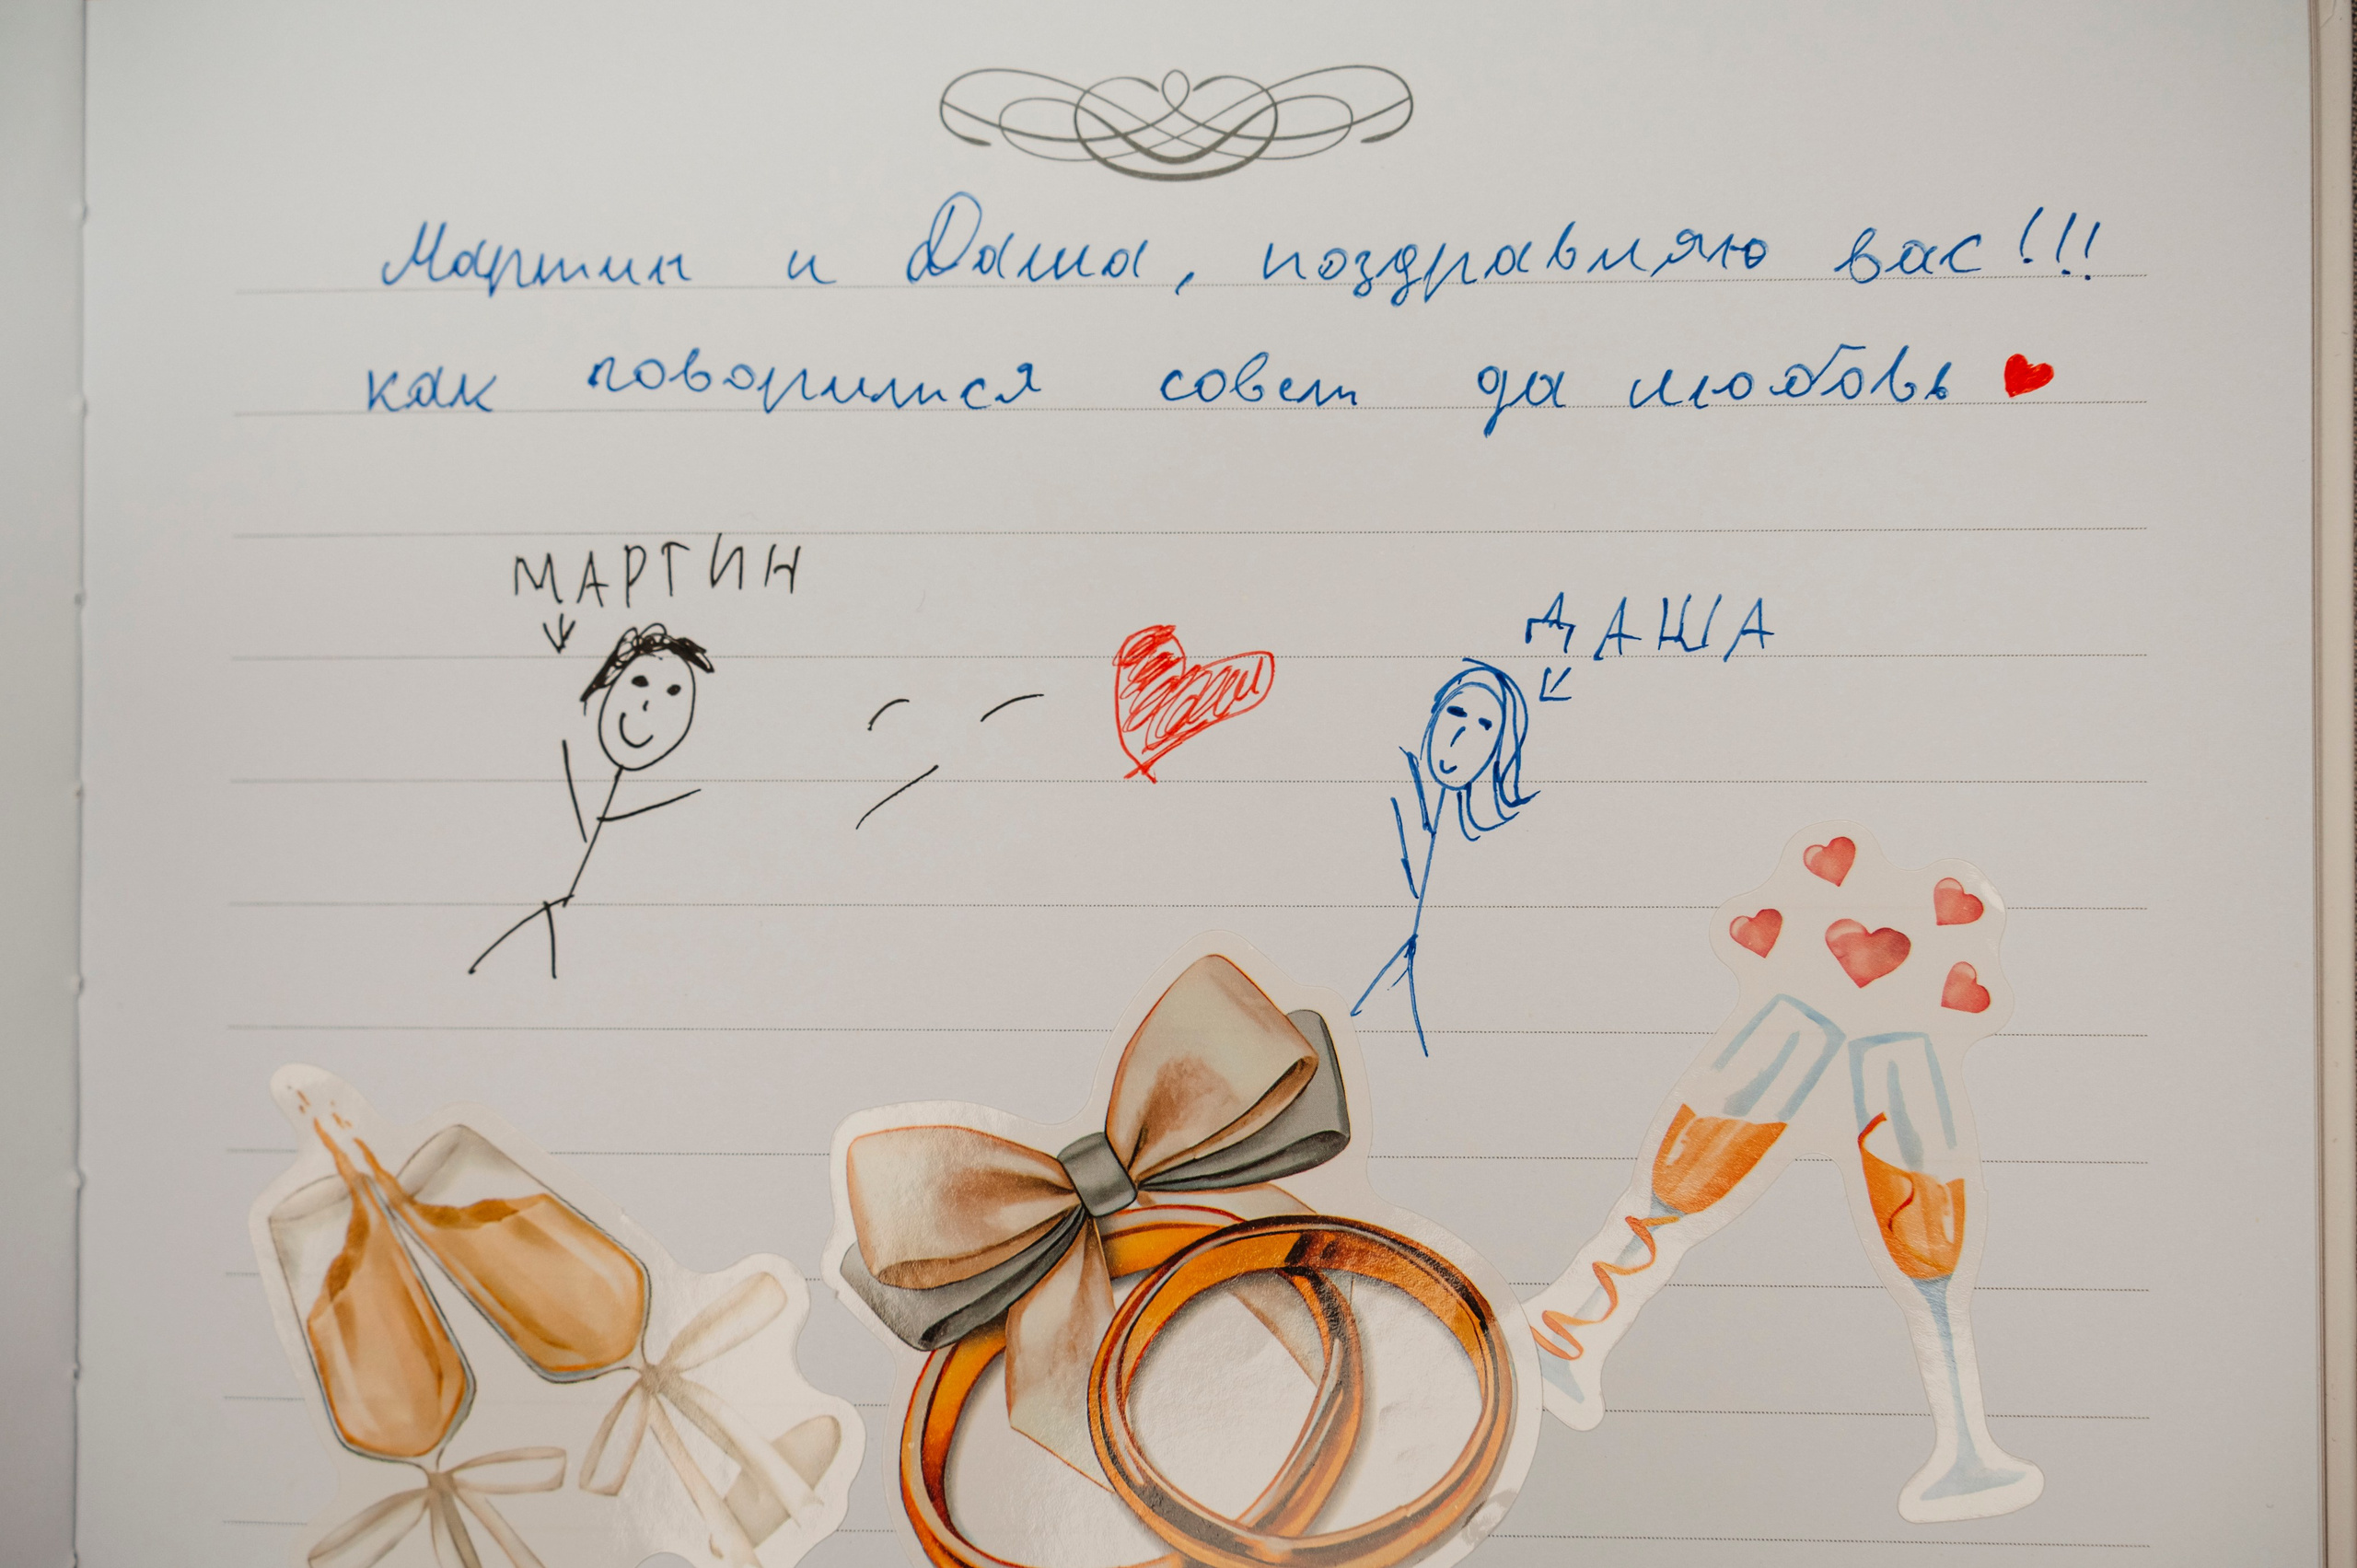 Мартин и Даша, поздравляю вас!!!
как говорится совет да любовь
МАРТИН
ДАША